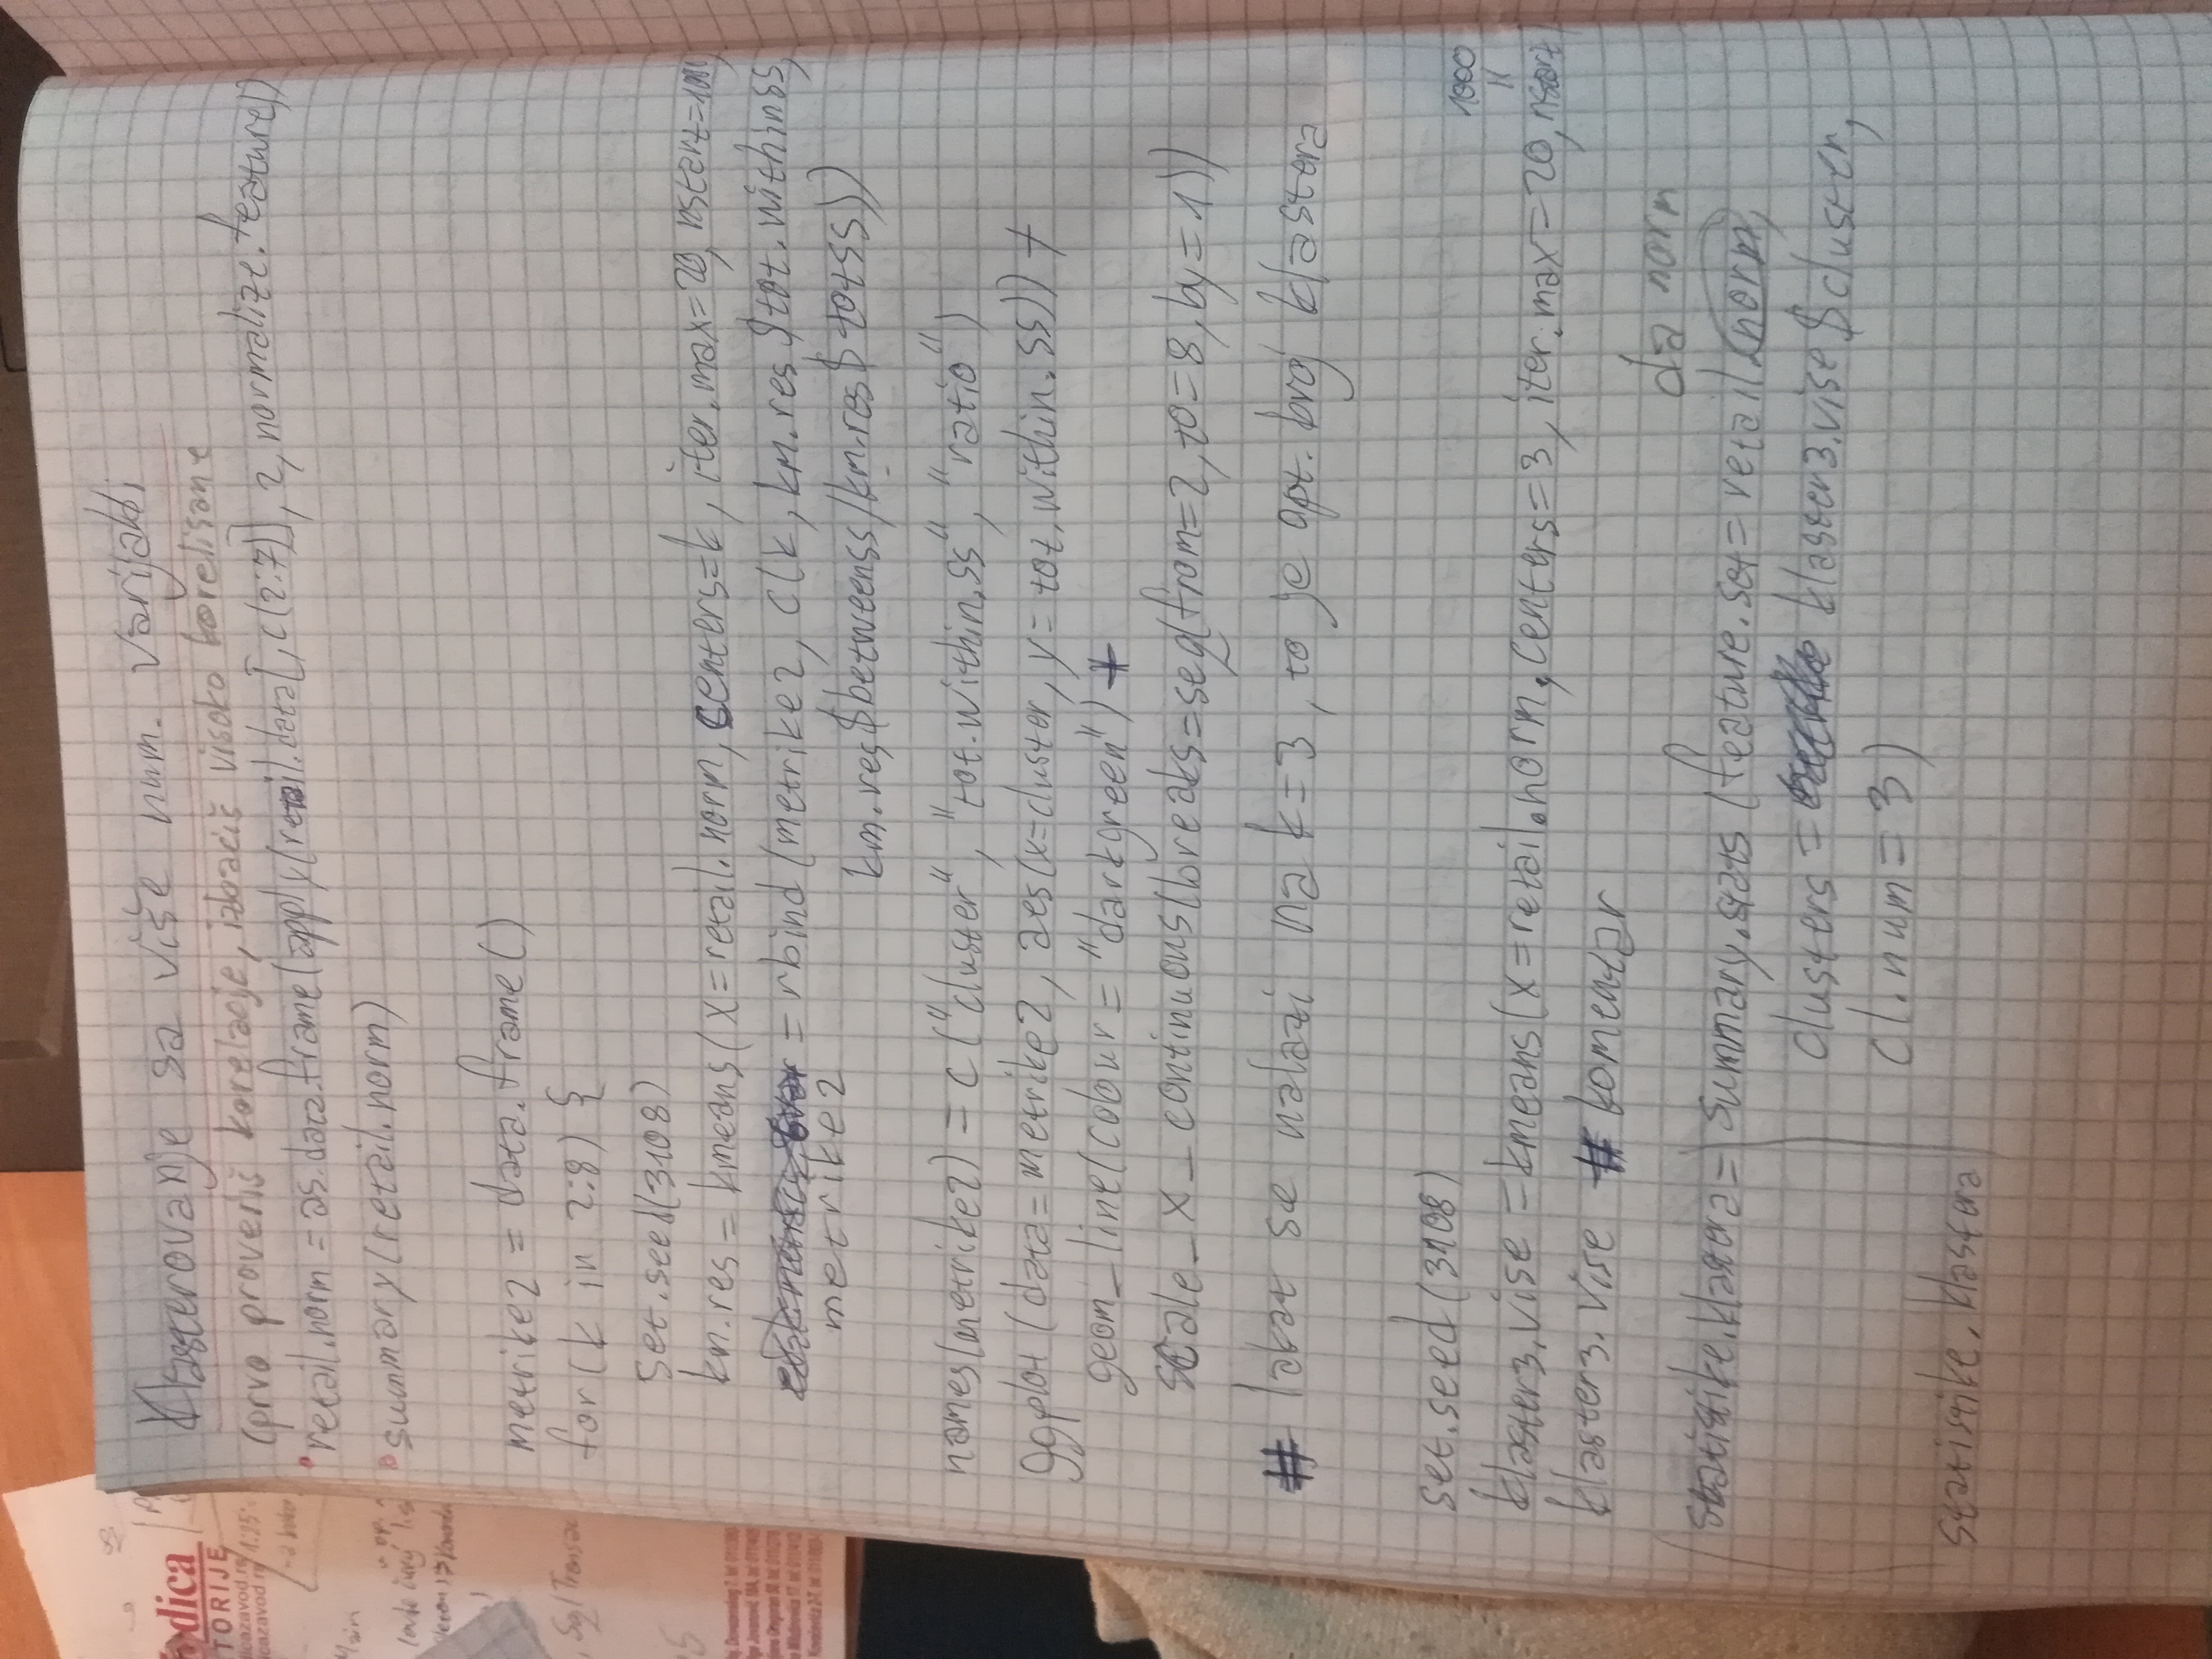 Klasterovanje sa više num. varijabli
(prvo proveriš korelacije, izbaciš visoko korelisane
retail.norm = as.data.frame(apply(retail.data[,c(2:7)], 2, normalize.feature))
summary(retail.norm)
metrike2 = data.frame()
for(k in 2:8) {
set.seed(3108)
km.res = kmeans(x=retail.norm, centers=k, iter.max=20, nstart=1000)
= rbind(metrike2, c(k, km.res$tot.withinss,
metrike2
km.res$betweenss/km.res$totss))
names(metrike2) = c("cluster", "tot.within.ss", "ratio")
ggplot(data=metrike2, aes(x=cluster, y=tot.within.ss)) +
geom_line(colour = "darkgreen") +
scale_x_continuous(breaks=seq(from=2, to=8, by=1))
# lakat se nalazi na k=3, to je opt. broj klastera
set.seed(3108)
1000
klaster3.vise = kmeans(x=retail.norm, centers=3, iter.max=20, nstart
klaster3.vise # komentar
da norm
statistike.klastera = summary.stats(feature.set = retail.norm,
clusters = klaster3.vise$cluster,
cl.num = 3)
statistike.klastera
dica
TORIJE
icazavod.rs
icazavod.rs
1:25
Main
Sql Transac